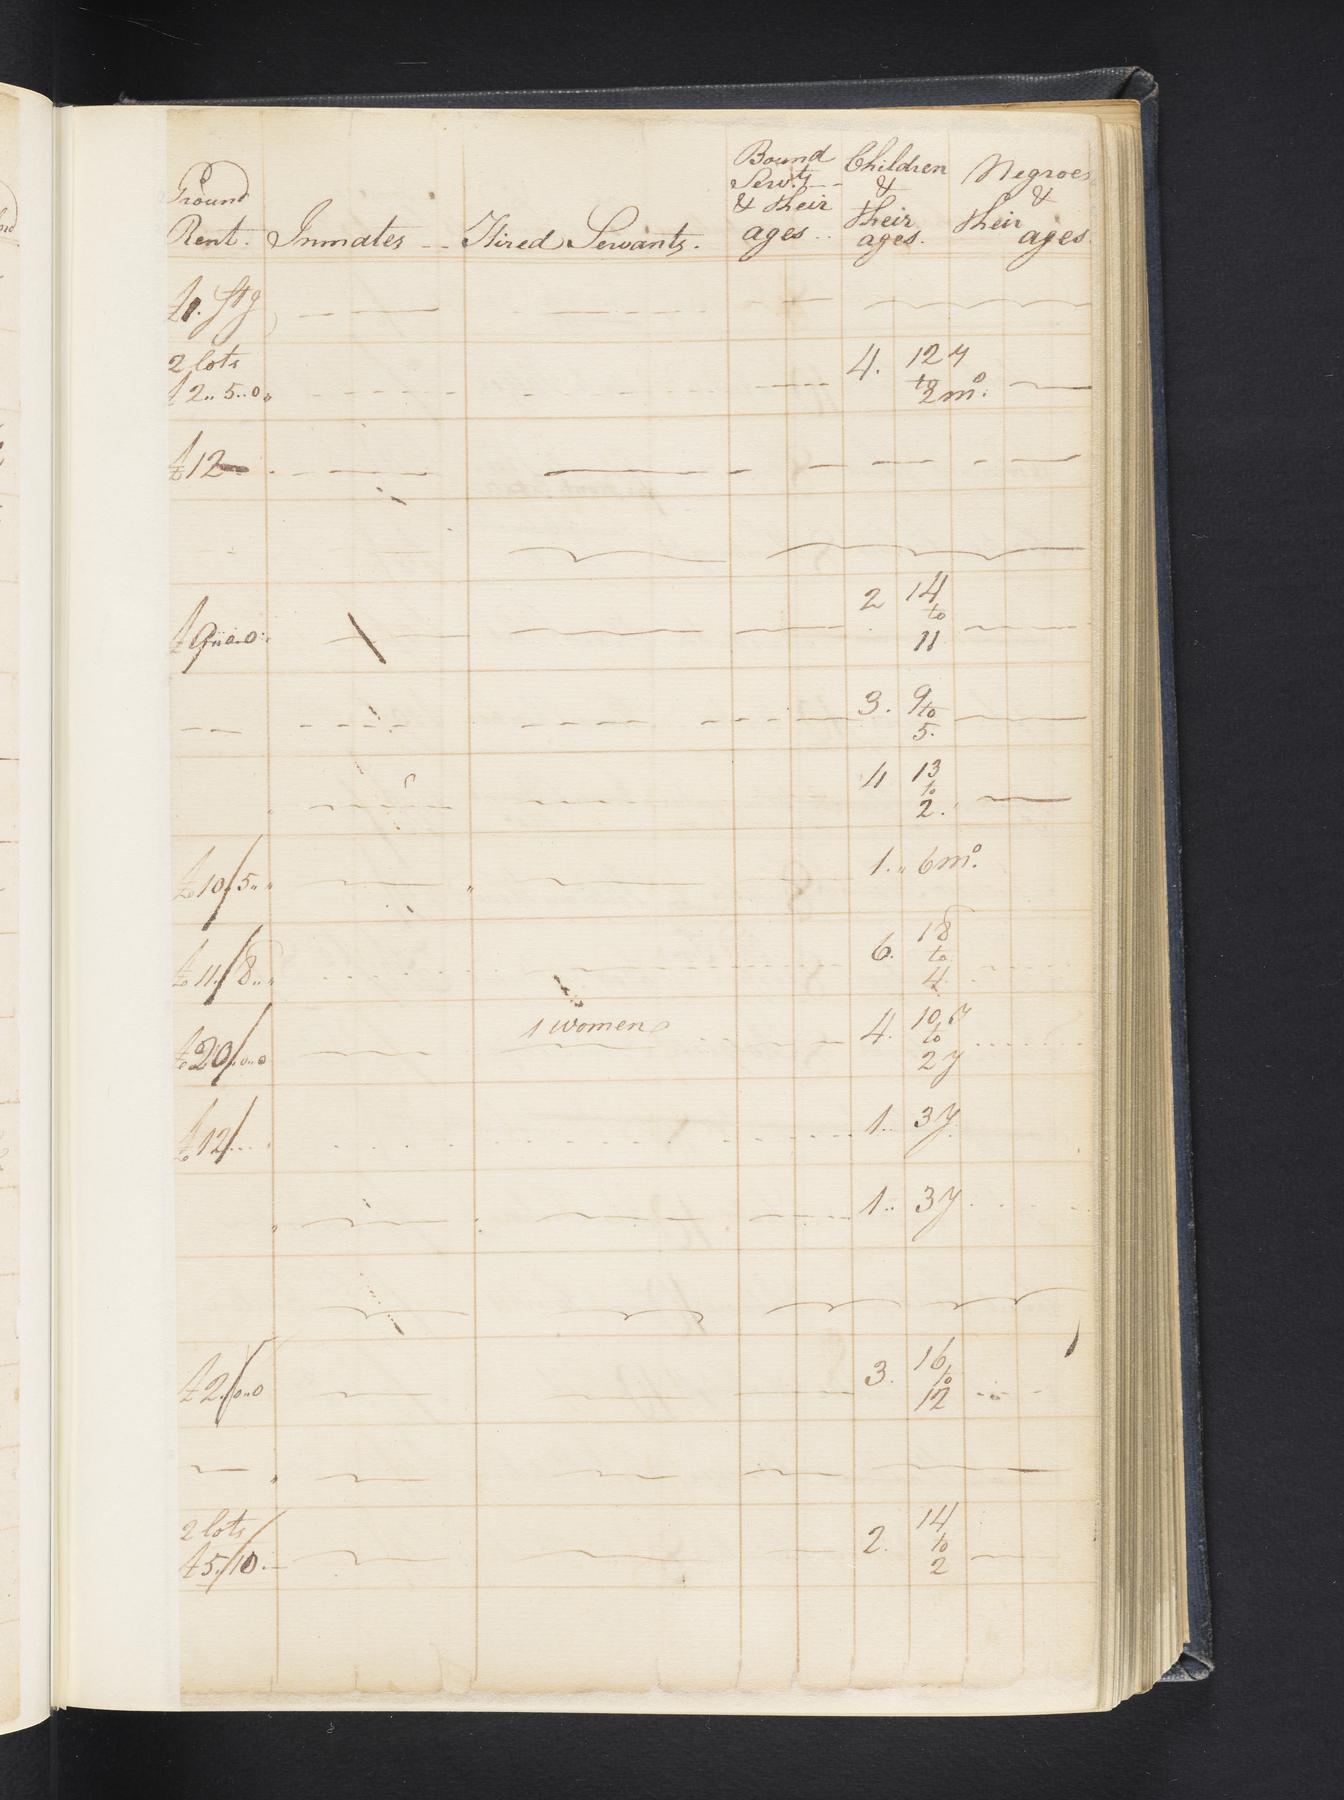 Ground Rent. Inmates Hired Servants. Bound Servts & their ages Children & their ages. Negroes & their ages
£1. stg
2 lots
£2..5..0 4. 12 y to 2 mo.
£12
£9..0..0 2 14 to 11
3. 9 to 5.
4 13 to 2.
£10/5.. 1.. 6 mo.
£11/8.. 6. 18 to 4
£20/..0..0 1 women 4. 10 y to 2 y
£12/ 1.. 3 y
1.. 3 y
£2/..0..0 3. 16 to 12
2 lots
£5/10 2. 14 to 2